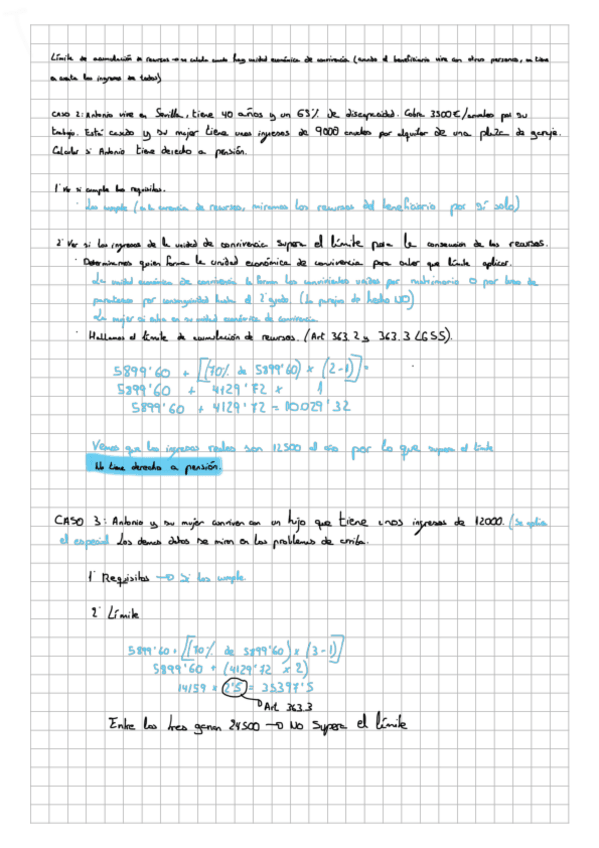 Límite de acumulación de recursos → se calcula cuando hay unidad económica de convivencia (cuando el beneficiario vive con otras personas, se tiene
en cuenta los ingresos de todos)
CASO 2: Antonio vive en Sevilla, tiene 40 años y un 65% de discapacidad. Cobra 3500€/anuales por su
trabajo. Está casado y su mujer tiene unos ingresos de 9000 anuales por alquiler de una plaza de garaje.
Calcular si Antonio tiene derecho a pensión.
1º Ver si cumple los requisitos.
· Los cumple (en la carencia de recursos, miramos los recursos del beneficiario por sí solo)
2º Ver si los ingresos de la unidad de convivencia supera el límite para la consecución de los recursos.
· Determinamos quien forma la unidad económica de convivencia para saber que límite aplicar.
La unidad económica de convivencia la forma los convivientes unidos por matrimonio o por lazo de
parentesco por consanguinidad hasta el 2º grado. (la pareja de hecho NO)
La mujer si entra en su unidad económica de convivencia
· Hallamos el límite de acumulación de recursos. (Art 363.2 y 363.3 LGSS).
5899'60 + [(70% de 5899'60) x (2-1)] =
5899'60 + 4129'72 x 1
5899'60 + 4129'72 = 10.029'32
Vemos que los ingresos reales son 12500 al año por lo que supera el límite
No tiene derecho a pensión.
CASO 3: Antonio y su mujer conviven con un hijo que tiene unos ingresos de 12000. (Se aplica
el especial Los demás datos se miran en los problemas de arriba.
1º Requisitos → Si los cumple
2º Límite
5899'60 + [(70% de 5899'60) x (3-1)]
5899'60 + (4129'72 x 2)
14159 x 2'5 = 35397'5
Art. 363.3
Entre los tres ganan 24500 → No supera el límite